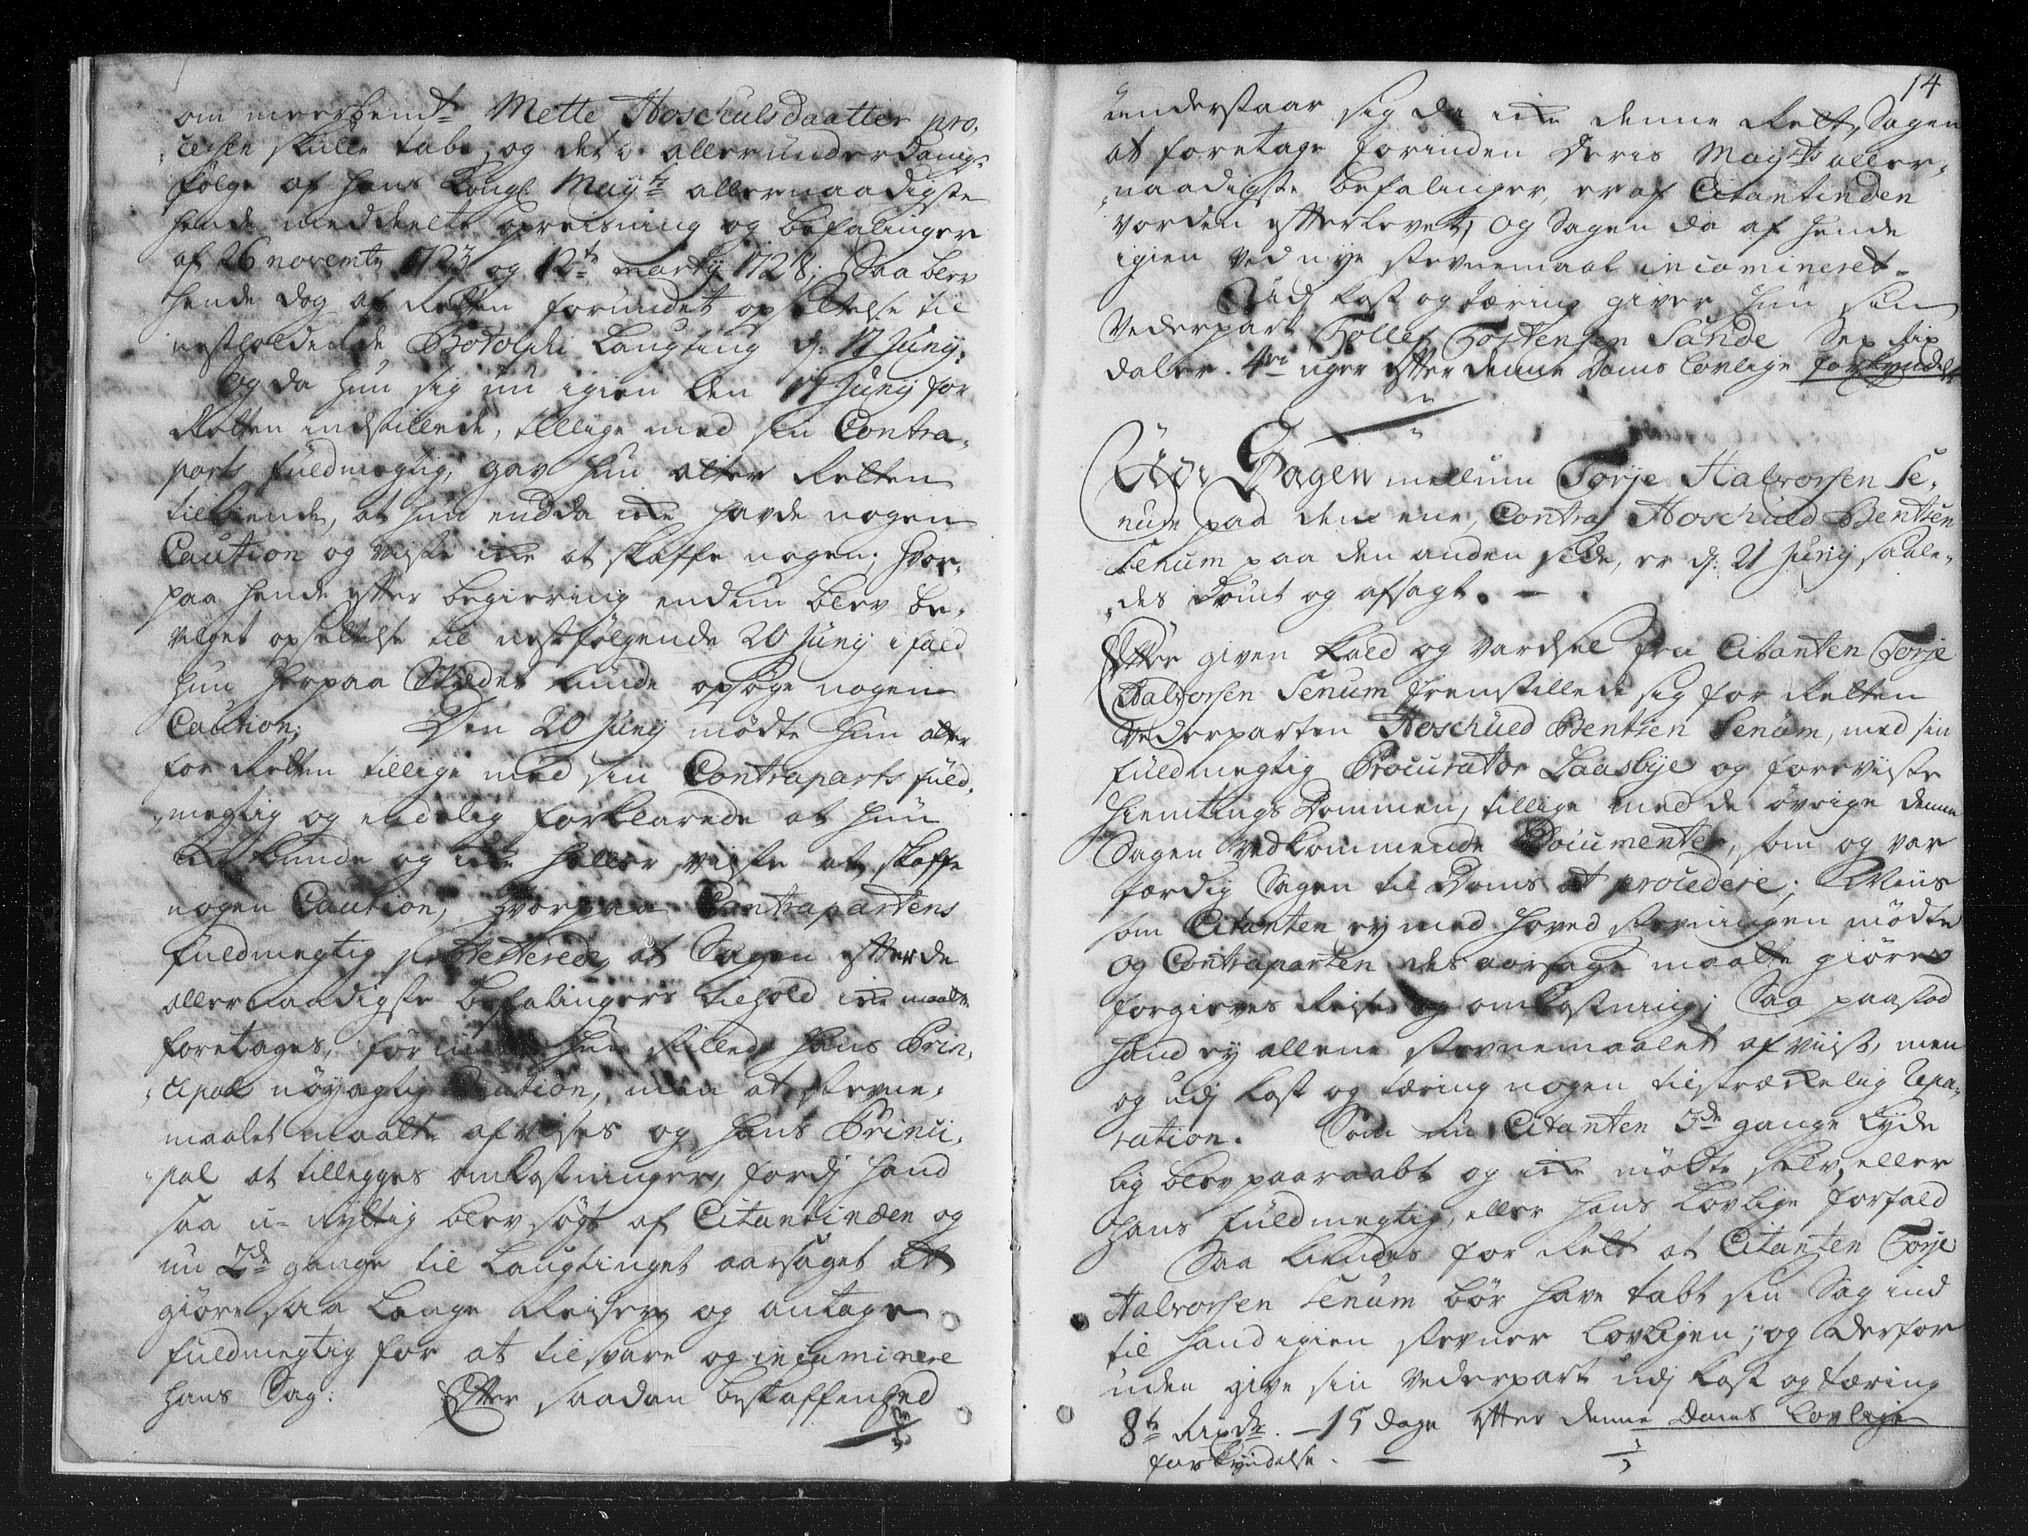 om meerbemt Mette Hoschulsdaatter pro-
cessen skulle tabe, og det i allerunderdanigst
følge af Hans Kongl. Mayts allernaadigste
hende meddeelte opreisning og befalinger
af 26 novembr 1723 og 12te marty 1728; Saa blev
hende dog af Retten forundet opsettelse til
nestholdende Botolphi Laugting d: 17 Junij.
Og da hun sig nu igien den 17 Junij for
Retten indstillede, tillige med sin Contra-
parts fuldmegtig, gav hun atter Retten
tilkiende, at hun endda icke hafde nogen
Caution og viste icke at skaffe nogen; hvor-
paa hende efter begiering endnu blev be-
vilget opsettelse til nestfølgende 20 Junij ifald
hun herpaa Stædet kunde opsøge nogen
Caution; Den 20 Junij mødte hun atter
for Retten tillige med sin Contraparts fuld-
megtig og endelig forklarede at hun
ei kunde og icke heller viste at skaffe
nogen Caution, hvorpaa Contrapartens
fuldmegtig protesterede, at Sagen efter de
allernaadigste befalingers tiehold icke maatte
foretages, før hun stillede hans Prin-
cipal nøyagtig Caution, men at stevne-
maalet maatte afvises og hans Princi-
pal at tillegges omkostninger, fordj hand
saa u-nyttig blev søgt af Citantinden og
nu 2de gange til Laugtinget aarsaget at
giøre saa lange Reiser og antage
fuldmegtig for at tilsvare og incaminere
hans Sag: Efter saadan beskaffenhed
14
understaar sig da icke denne Rett, Sagen
at foretage forinden Deris Mayts aller-
naadigste befalinger, er af Citantinden
vorden efterlevet, og Sagen da af hende
igien ved nye stevnemaal incamineret.
Udj kost og tæring giver hun sin
Vederpart Tollef Tostensen Sande Sex Rix
daler. 4re uger efter denne Doms lovlige forkyndelse
Udi Sagen mellum Torje Halvorsen Se-
num paa den ene, Contra Hoschuld Bentsen
Senum paa den anden side, er d: 21 Junij saale-
des dømt og afsagt.
Efter given kald og vardsel fra Citanten Torje
Halvorsen Senum fremstillede sig for Retten
Vederparten Hoschued Bentsen Senum, med sin
fuldmegtig Procurator Laasbye og foreviiste
Hiemtings Dommen, tillige med de øvrige denne
Sagen vedkommende Documenter, som og var
færdig Sagen til Doms at procedere; Men
som Citanten ey med hoved stevningen mødte
og Contraparten des aarsage maatte giøre
forgieves Reise og omkostning; Saa paastod
hand ey allene stevnemaalet afviist, men
og udj kost og tæring nogen tilstræckelig repa-
ration. Som nu Citanten 3de gange lyde
lig blev paaraabt og icke mødte selv, eller
hans fuldmegtig, eller hans lovlige forfald
Saa kiendes for Rett at Citanten Torje
Halvorsen Senum bør have tabt sin Sag ind
til hand igien stevner lovligen; og derfor
uden give sin vederpart udj kost og tæring
8te Rixdr. – 15 dage efter denne Doms lovlige
forkyndelse.